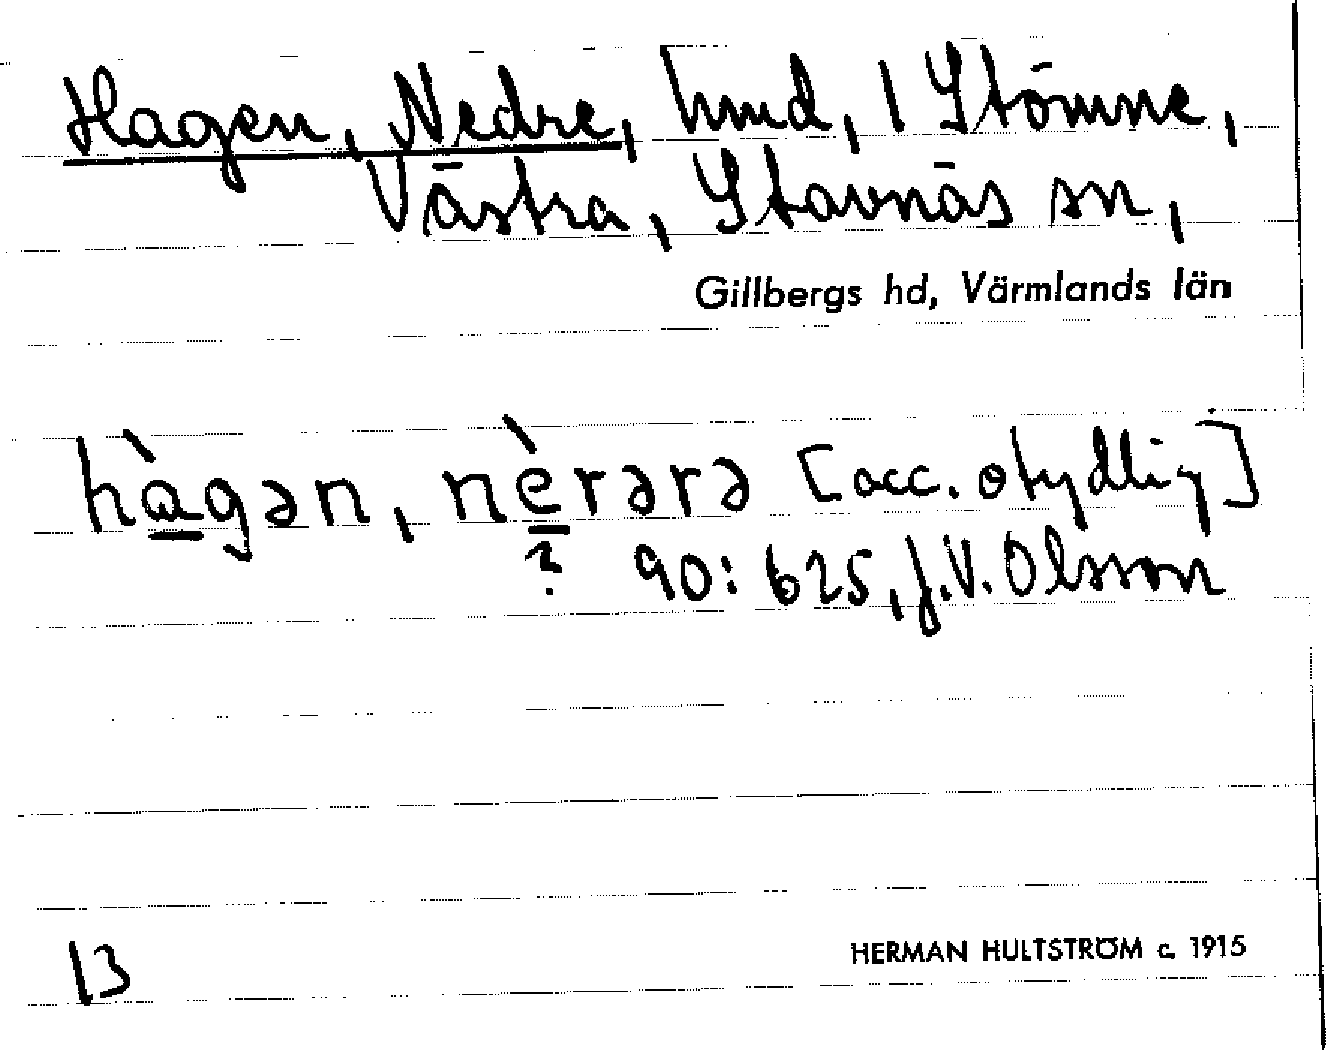 Hagen, Nedre, hmd, 1 Stömne,
Västra, Stavnäs sn,
Gillbergs hd, Värmlands län
hàgən, nèrərə [acc. otydlig]
? 90: 625, J.V. Olsson
13
HERMAN HULTSTRÖM c. 1915